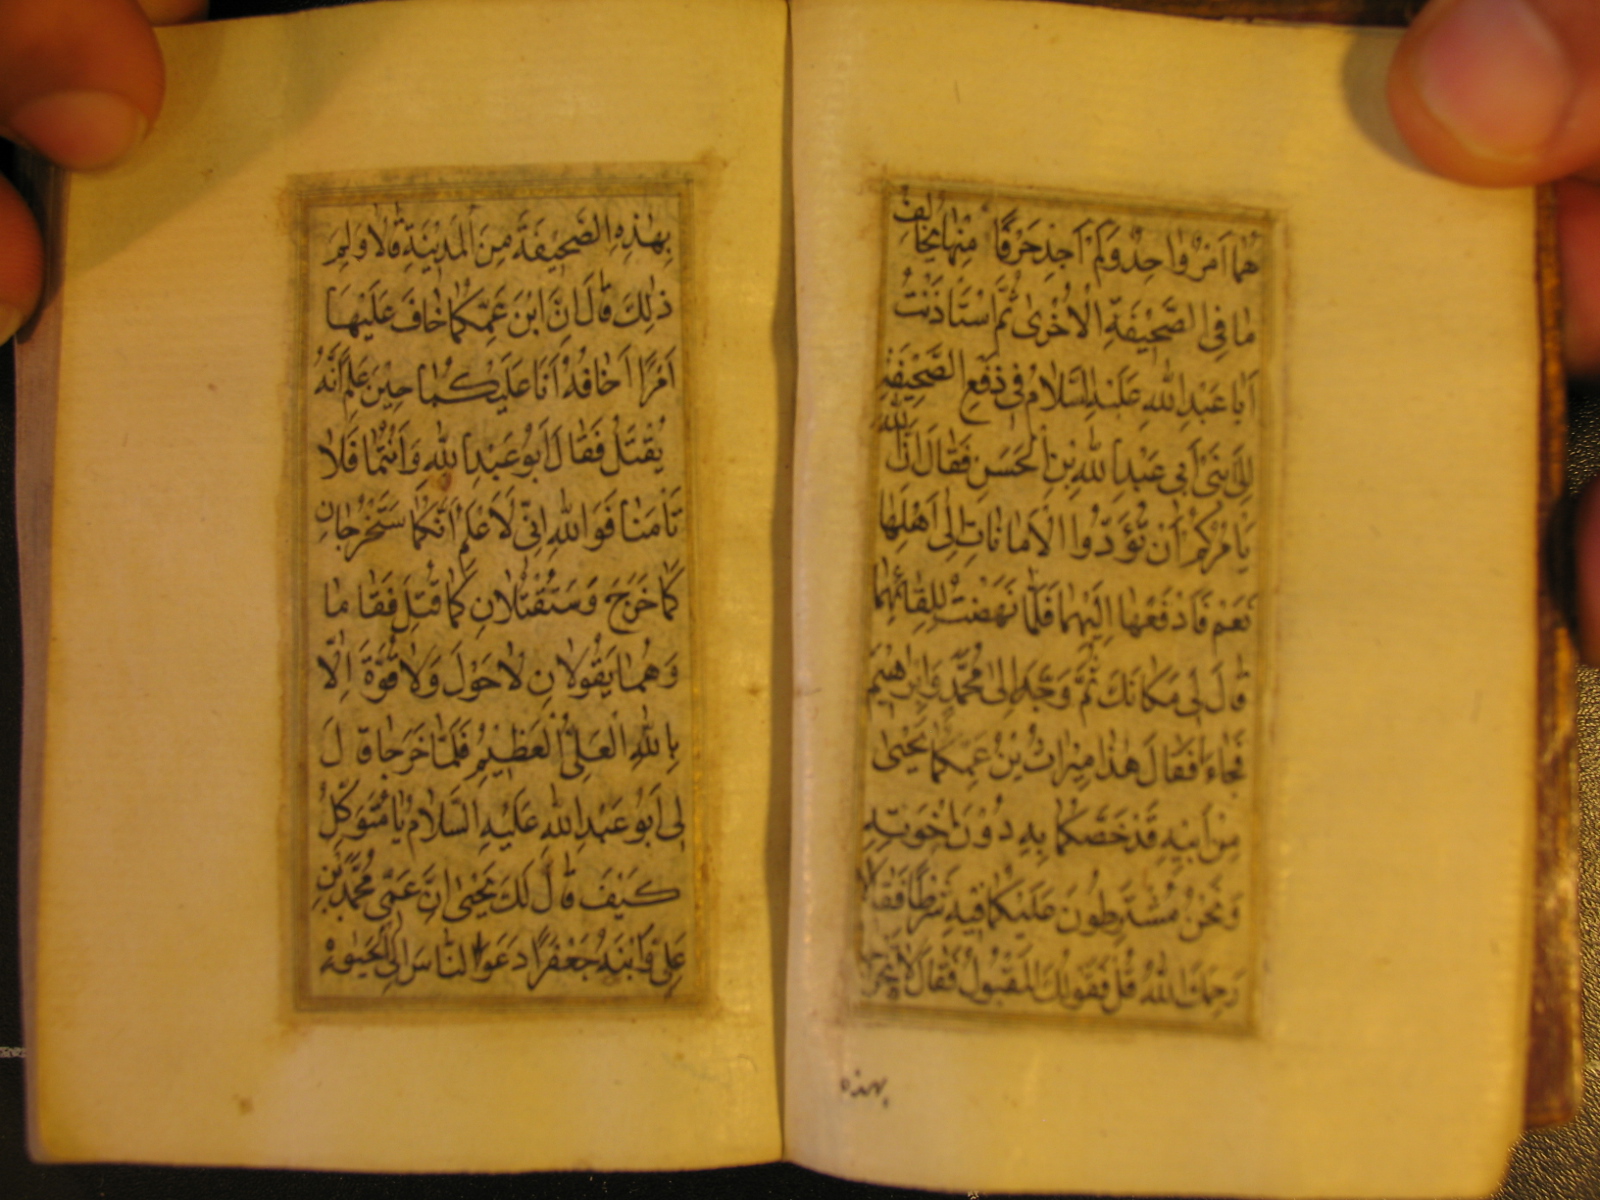 هُمَا اَمْرٌ وٰاحِدٌ وَلَمْ اَجِدْ حَرْفًا مِنْهٰا يُخٰالِفُ
مٰا فِى الصَّحٖيفَةِ الْاُخْرىٰ ثُمَّ اسْتَاْذَنْتُ
اَبٰا عَبْدِ اللّٰهِ عَلَيْهِ السَّلٰامُ فٖى دَفْعِ الصَّحٖيفَةِ
اِلَى ابْنَىْ اَبٖى عَبْدِ اللّٰهِ بْنِ الْحَسَنِ فَقٰالَ اِنَّ اللّٰهَ
يَاْمُرُكُمْ اَنْ تُؤَدُّوا الْاَمٰانٰاتِ اِلىٰ اَهْلِهٰا
نَعَمْ فَادْفَعْهٰا اِلَيْهِمٰا فَلَمّٰا نَهَضْتُ لِلِقٰائِهِمٰا
قٰالَ لٖى مَكٰانَكَ ثُمَّ وَجَّهَ اِلىٰ مُحَمَّدٍ وَاِبْرٰهٖيمَ
فَجٰاءٰا فَقٰالَ هٰذٰا مٖيرٰاثُ بْنِ عَمِّكُمٰا يَحْيىٰ
مِنْ اَبٖيهِ قَدْ خَصَّكُمٰا بِهٖ دُوْنَ اِخْوَتِهٖ
وَنَحْنُ مُشْتَرِطُونَ عَلَيْكُمٰا فٖيهِ شَرْطًا فَقٰالٰا
رَحِمَكَ اللّٰهُ قُلْ فَقَوْلُكَ الْمَقْبُولُ فَقٰالَ لٰا تَخْرُجٰا
بهذه
بِهٰذِهِ الصَّحٖيفَةِ مِنَ الْمَدٖينَةِ قٰالٰا وَلِمَ
ذٰلِكَ قٰالَ اِنَّ ابْنَ عَمِّكُمٰا خٰافَ عَلَيْهٰا
اَمْرًا اَخٰافُهُ اَنَا عَلَيْكُمٰا حٖينَ عَلِمَ اَنَّهُ
يُقْتَلُ فَقٰالَ اَبُو عَبْدِ اللّٰهِ وَاَنْتُمٰا فَلٰا
تَاْمَنٰا فَوَاللّٰهِ اِنّٖى لَاَعْلَمُ اَنَّكُمٰا سَتَخْرُجٰانِ
كَمٰا خَرَجَ وَسَتُقْتَلٰانِ كَمٰا قُتِلَ فَقٰامٰا
وَهُمٰا يَقُولٰانِ لٰا حَوْلَ وَلٰا قُوَّةَ اِلّٰا
بِاللّٰهِ الْعَلِىِّ الْعَظٖيمِ فَلَمّٰا خَرَجٰا قٰالَ
لٖى اَبُو عَبْدِ اللّٰهِ عَلَيْهِ السَّلٰامُ يٰا مُتَوَكِّلُ
كَيْفَ قٰالَ لَكَ يَحْيىٰ اِنَّ عَمّٖى مُحَمَّدَ بْنَ
عَلِىٍّ وَابْنَهُ جَعْفَرًا دَعَوَا النّٰاسَ اِلَى الْحَيٰوةِ